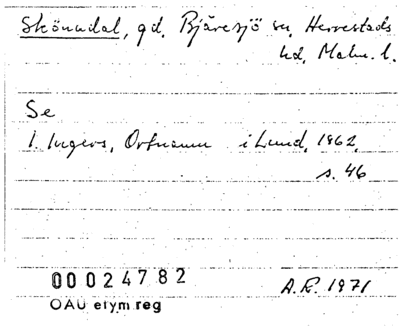 Skönadal, gd, Bjäresjö sn, Herrestads
hd, Malm. l.
Se
I. Ingers, Ortnamn i Lund, 1962,
s. 46
00024782
OAU etym reg
A.E. 1971